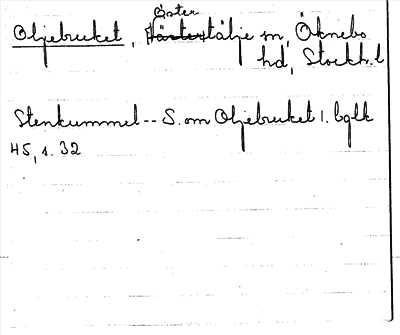 Oljebruket, Östertälje sn, Öknebo
hd, Stockh.l
Stenkummel -- S. om Oljebruket 1. bglk
45, s. 32